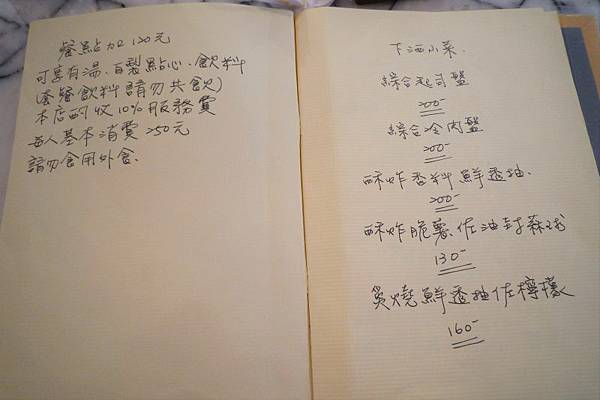 餐點加120元
可享有湯、自製點心、飲料
(套餐飲料請勿共飲)
本店酌收10%服務費
每人基本消費250元
請勿食用外食.
下酒小菜.
綜合起司盤
200-
綜合冷肉盤
200-
酥炸香料鮮透抽.
200-
酥炸脆薯佐油封蒜球
130-
炙燒鮮透抽佐檸檬
160-